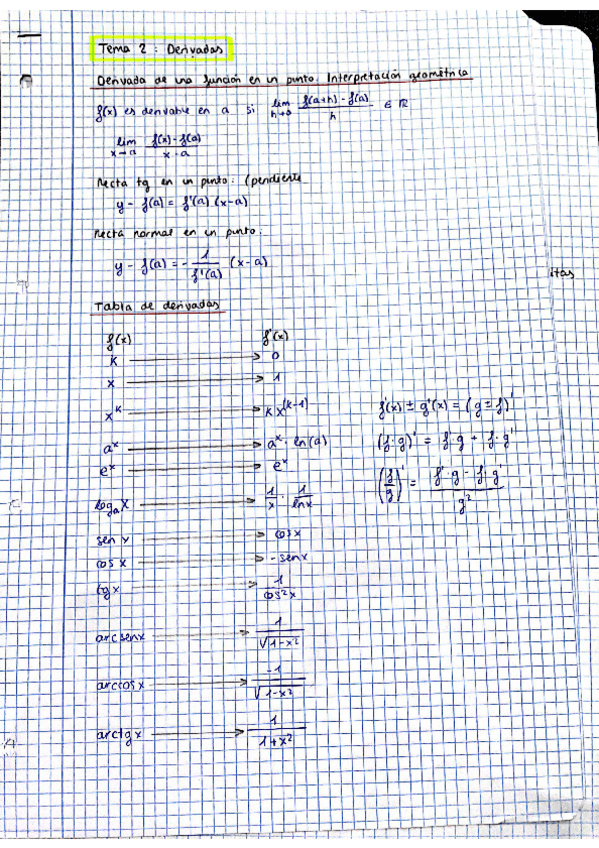 Tema 2 : Derivadas
Derivada de una función en un punto. Interpretación geométrica
f(x) es derivable en a si lim h→0 f(a+h) - f(a) / h ∈ ℝ
lim x→a f(x) - f(a) / x - a
Recta tg en un punto: (pendiente
y - f(a) = f'(a) (x-a)
Recta normal en un punto:
y - f(a) = - 1 / f'(a) (x-a)
itas
Tabla de derivadas
f(x) f'(x)
K → 0
x → 1
x^K → K x^(K-1)
f'(x) ± g'(x) = (g ± f)'
a^x → a^x · ln(a)
(f·g)' = f'·g + f·g'
e^x → e^x
(f/g)' = f'·g - f·g' / g²
log_a x → 1/x · 1/lnx
sen x → cosx
cos x → - senx
tg x → 1 / cos²x
arcsenx → 1 / √1-x²
arccosx → -1 / √1-x²
arctgx → 1 / 1+x²